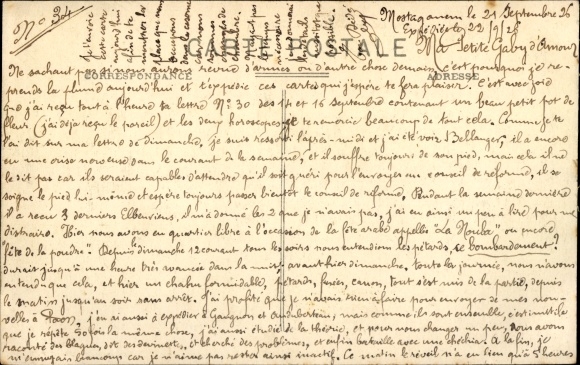 N° 324
Mostaganem le 21 Septembre 26
Expédiée le 22/9/26
Ma Petite Gaby d'Amour
CARTE POSTALE
CORRESPONDANCE
ADRESSE
Ne sachant pas si revue d'armes ou d'autre chose demain, c'est pourquoi je re-
prends la plume aujourd'hui et t'expédie ces cartes qui j'espère te fera plaisir. C'est avec joie
que j'ai reçu tout à l'heure ta lettre N° 30 des 14 et 16 Septembre contenant un beau petit pot de
fleur (j'ai déjà reçu le pareil) et les deux horoscopes je te remercie beaucoup de tout cela. Comme je te
l'ai dit sur ma lettre de dimanche, je suis ressorti l'après-midi et j'ai été voir Bellanger, il a encore
eu une crise nerveuse dans le courant de la semaine, et il souffre toujours de son pied, mais cela il ne
le dit pas car ils seraient capables d'attendre qu'il soit guéri pour l'envoyer au conseil de reforme, il se
soigne le pied lui-même et espère toujours passer bientôt le conseil de reforme. Pendant la semaine dernière
il a reçu 3 derniers Elbeuviens, il m'a donné les 2 que je n'avais pas, j'ai eu ainsi un peu à lire pour me
distraire. Hier nous avons eu quartier libre à l'occasion de la fête arabe appelée "La Noula" ou encore
"fête de la poudre". Depuis dimanche 12 courant tous les soirs nous entendions les pétards, ce bombardement
durait jusqu'à une heure très avancée dans la nuit, avant hier dimanche, toute la journée, nous n'avons
entendu que cela, et hier un chahut formidable, pétards, fusées, canon, tout s'est mis de la partie, depuis
le matin jusqu'au soir sans arrêt. J'ai profité que je n'avais rien à faire pour envoyer de mes nou-
velles à Paon, j'en ai aussi expédié à Gaugnon et Audubertain, mais comme ils sont ensemble, c'est inutile
que je répète 30 fois la même chose, j'ai aussi étudié de la théorie, et pour nous changer un peu, nous avons
raconté des blagues, dit des devinettes, et cherché des problèmes, et enfin bataille avec une chéchia. À la fin, je
m'ennuyais beaucoup car je n'aime pas rester ainsi inactif. Ce matin le réveil n'a eu lieu qu'à 5 heures